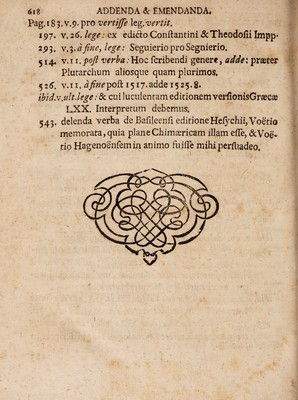 618 ADDENDA & EMENDANDA.
Pag. 183. v. 9. pro vertisse leg. vertit.
197. v. 26. lege: ex edicto Constantini & Theodosii Impp.
293. v. 3. à fine, lege: Seguierio pro Segnierio.
514. v. 11. post verba: Hoc scribendi genere, adde: præter
Plutarchum aliosque quam plurimos.
526. v. 11. à fine post 1517. adde 1525. 8.
ibid. v. ult. lege: & cui luculentam editionem versionis Græcæ
LXX. Interpretum debemus.
543. delenda verba de Basileensi editione Hesychii, Voëtio
memorata, quia plane Chimæricam illam esse, & Voë-
tio Hagenoënsem in animo fuisse mihi persuadeo.